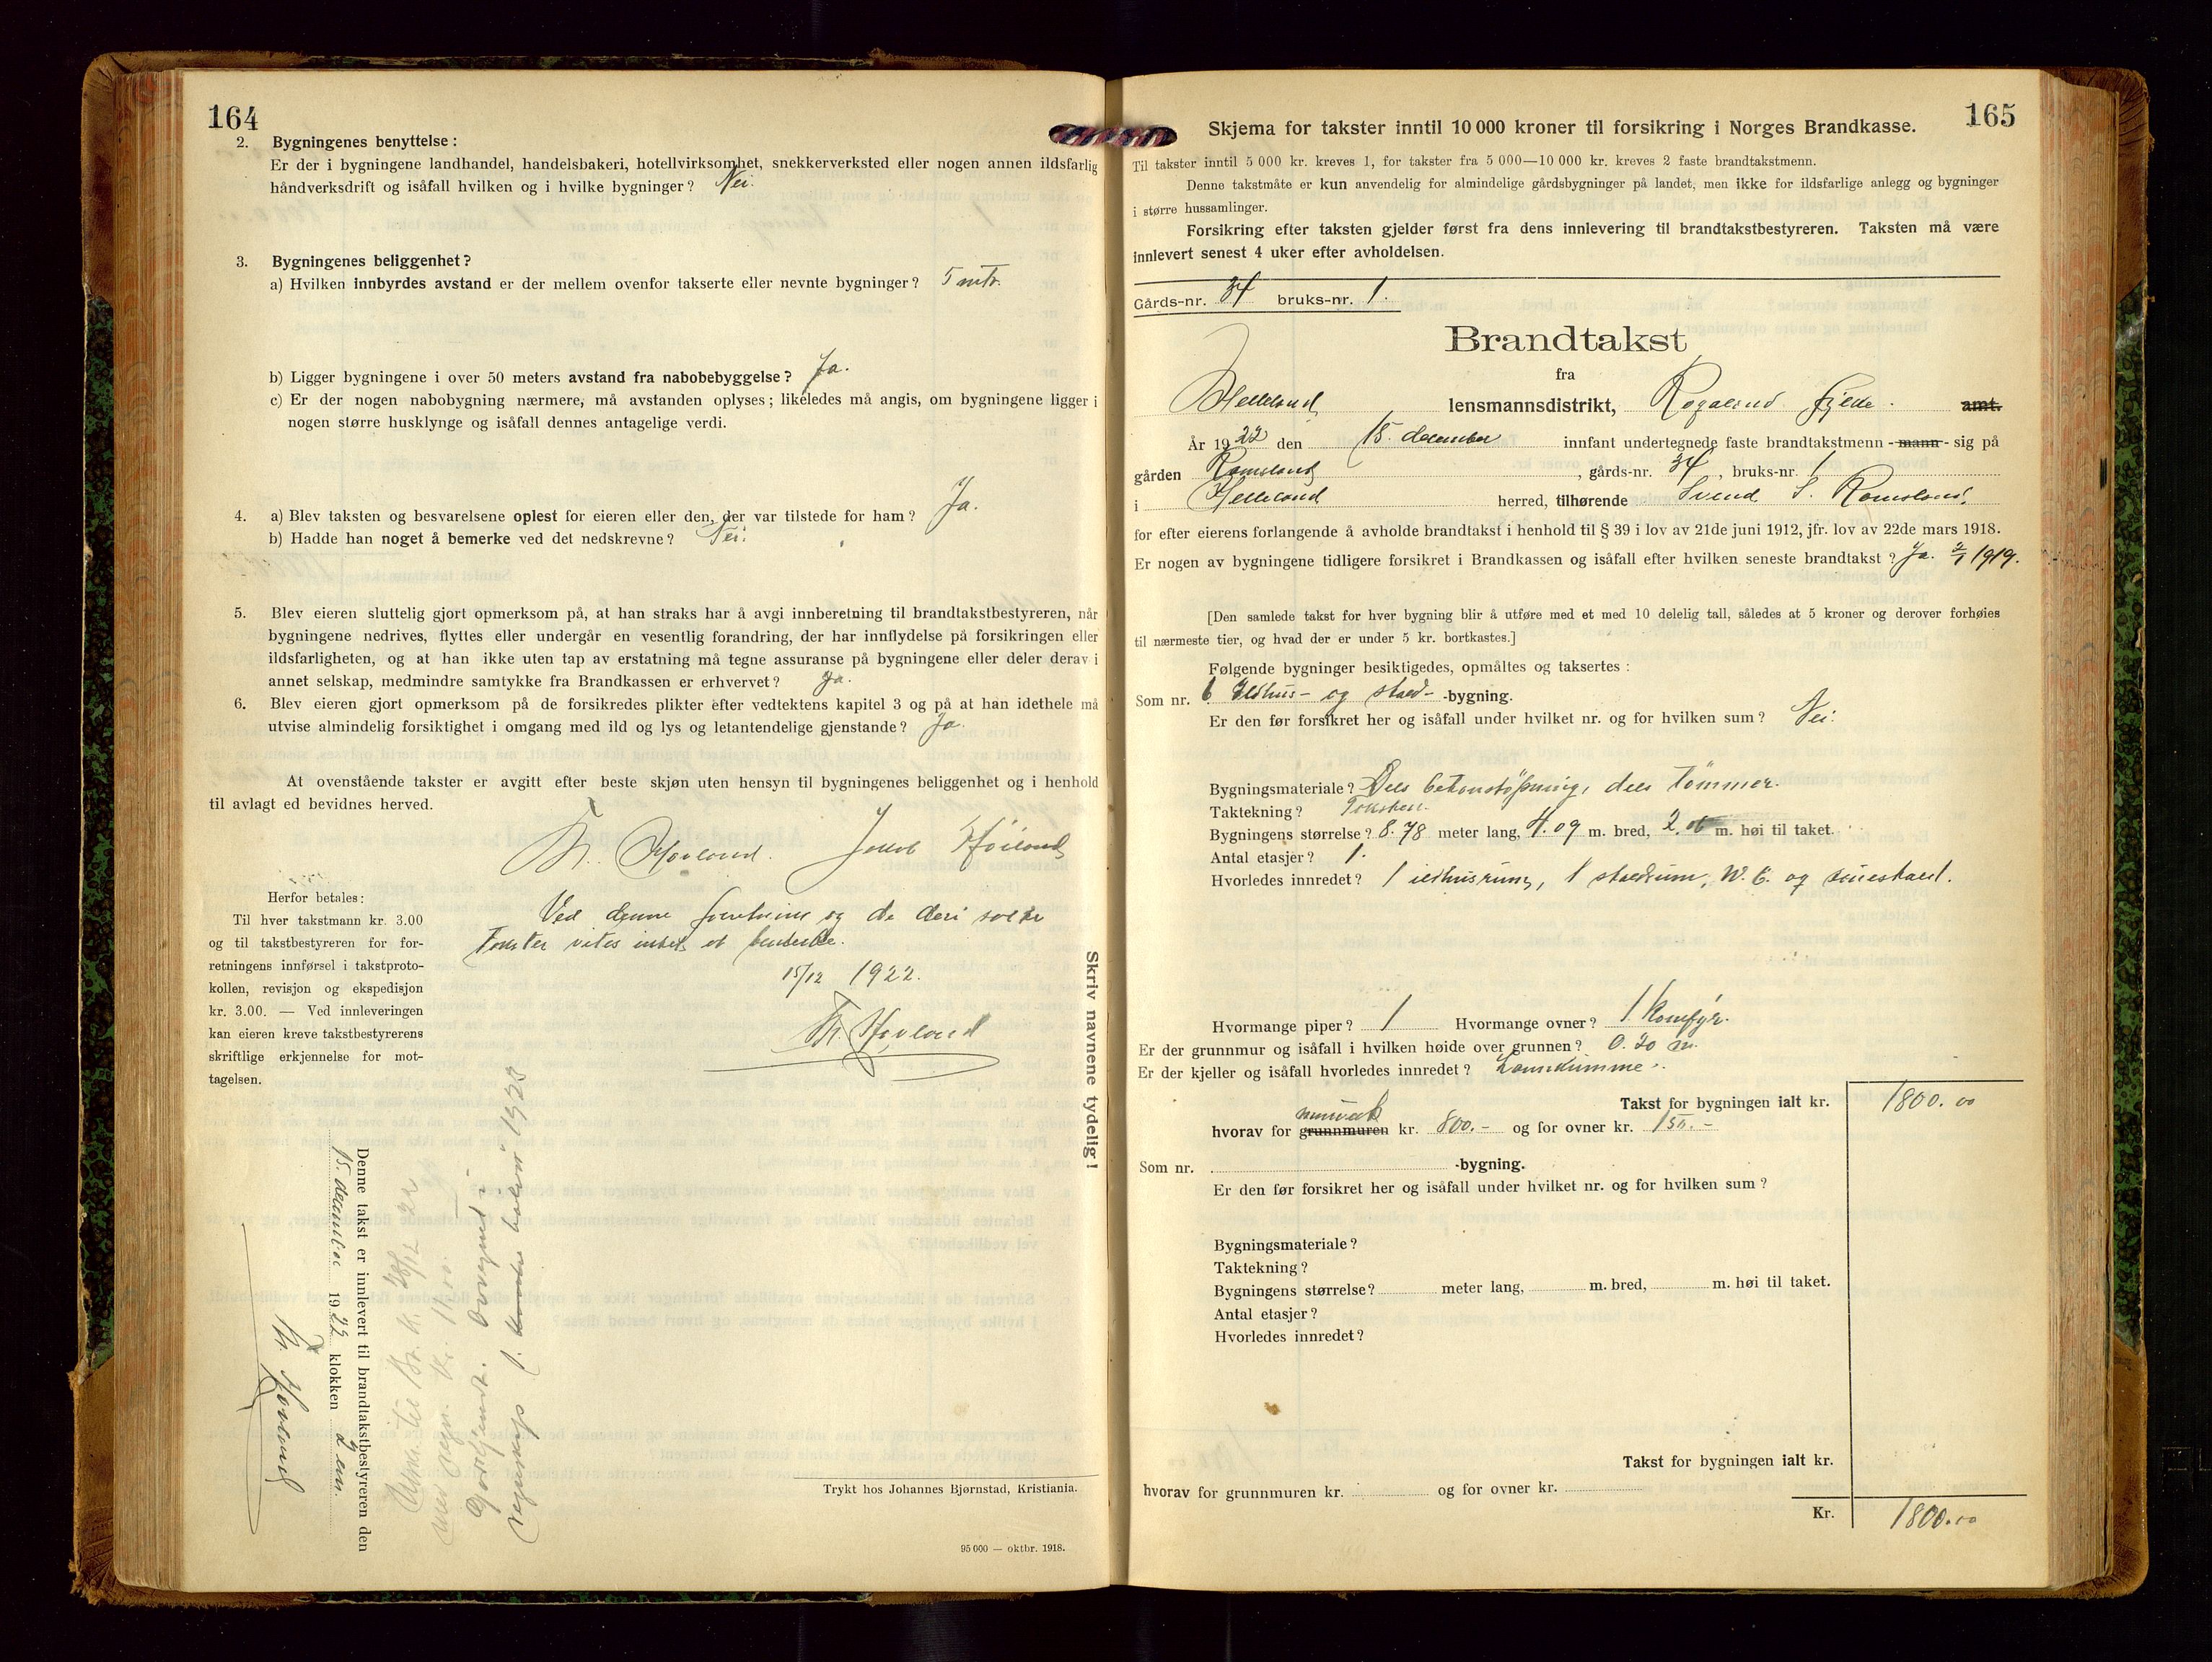 164
2. Bygningenes benyttelse:
Er der i bygningene landhandel, handelsbakeri, hotellvirksomhet, snekkerverksted eller nogen annen ildsfarlig
håndverksdrift og isåfall hvilken og i hvilke bygninger? Nei.
3. Bygningenes beliggenhet?
a) Hvilken innbyrdes avstand er der mellem ovenfor takserte eller nevnte bygninger? 5 mtr.
b) Ligger bygningene i over 50 meters avstand fra nabobebyggelse? Ja.
c) Er der nogen nabobygning nærmere, må avstanden oplyses; likeledes må angis, om bygningene ligger i
nogen større husklynge og isåfall dennes antagelige verdi.
4. a) Blev taksten og besvarelsene oplest for eieren eller den, der var tilstede for ham? Ja.
b) Hadde han noget å bemerke ved det nedskrevne? Nei.
5. Blev eieren sluttelig gjort opmerksom på, at han straks har å avgi innberetning til brandtakstbestyreren, når
bygningene nedrives, flyttes eller undergår en vesentlig forandring, der har innflydelse på forsikringen eller
ildsfarligheten, og at han ikke uten tap av erstatning må tegne assuranse på bygningene eller deler derav i
annet selskap, medmindre samtykke fra Brandkassen er erhvervet? Ja.
6. Blev eieren gjort opmerksom på de forsikredes plikter efter vedtektens kapitel 3 og på at han idethele må
utvise almindelig forsiktighet i omgang med ild og lys og letantendelige gjenstande? Ja.
At ovenstående takster er avgitt efter beste skjøn uten hensyn til bygningenes beliggenhet og i henhold
til avlagt ed bevidnes herved.
Th. Hovland. Jakob Høiland
Ved denne og de deri satte
Takster vites intet at bemerke.
15/12 1922.
Th. Hovland
Herfor betales:
Til hver takstmann kr. 3.00
og til takstbestyreren for for-
retningens innførsel i takstproto-
kollen, revisjon og ekspedisjon
kr. 3.00. — Ved innleveringen
kan eieren kreve takstbestyrerens
skriftlige erkjennelse for mot-
tagelsen.
Skriv navnene tydelig!
Denne takst er innlevert til brandtakstbestyreren den
15. december 1922 klokken 2 em.
Th. Hovland
Br. k. 28/12 22
Godkjendt. i
1923
Trykt hos Johannes Bjørnstad, Kristiania.
95 000 — oktbr. 1918.
165
Skjema for takster inntil 10 000 kroner til forsikring i Norges Brandkasse.
Til takster inntil 5 000 kr. kreves 1, for takster fra 5 000—10 000 kr. kreves 2 faste brandtakstmenn.
Denne takstmåte er kun anvendelig for almindelige gårdsbygninger på landet, men ikke for ildsfarlige anlegg og bygninger
i større hussamlinger.
Forsikring efter taksten gjelder først fra dens innlevering til brandtakstbestyreren. Taksten må være
innlevert senest 4 uker efter avholdelsen.
Gårds-nr. 34 bruks-nr. 1.
Brandtakst
fra
Helleland lensmannsdistrikt, Rogaland fylke. amt.
År 1922 den 15. december innfant undertegnede faste brandtakstmenn - mann - sig på
gården Ramsland, gårds-nr. 34, bruks-nr. 1
i Helleland herred, tilhørende Svend S. Ramsland,
for efter eierens forlangende å avholde brandtakst i henhold til § 39 i lov av 21de juni 1912, jfr. lov av 22de mars 1918.
Er nogen av bygningene tidligere forsikret i Brandkassen og isåfall efter hvilken seneste brandtakst? Ja. 2/1 1919.
[Den samlede takst for hver bygning blir å utføre med et med 10 delelig tall, således at 5 kroner og derover forhøies
til nærmeste tier, og hvad der er under 5 kr. bortkastes.]
Følgende bygninger besiktigedes, opmåltes og taksertes:
Som nr. 6 Ildhus- og stald- -bygning.
Er den før forsikret her og isåfall under hvilket nr. og for hvilken sum? Nei.
Bygningsmateriale? Dels betonstøpning, dels tømmer.
Taktekning? Taksten.
Bygningens størrelse? 8.78 meter lang, 4.09 m. bred, 2.06 m. høi til taket.
Antal etasjer? 1.
Hvorledes innredet? 1 ildhusrum, 1 staldrum, W. C. og
Hvormange piper? 1 Hvormange ovner? 1 Komfyr.
Er der grunnmur og isåfall i hvilken høide over grunnen? 0.20 m.
Er der kjeller og isåfall hvorledes innredet?
Takst for bygningen ialt kr. 1800.00
murverk
hvorav for grunnmuren kr. 800.- og for ovner kr. 150.-
Som nr. -bygning.
Er den før forsikret her og isåfall under hvilket nr. og for hvilken sum?
Bygningsmateriale?
Taktekning?
Bygningens størrelse? meter lang, m. bred, m. høi til taket.
Antal etasjer?
Hvorledes innredet?
Takst for bygningen ialt kr.
hvorav for grunnmuren kr. og for ovner kr.
Kr. 1800.00